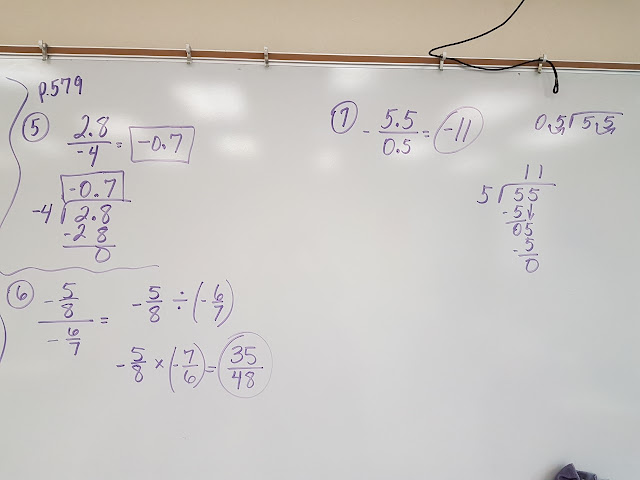 p.579
⑤ 2.8/-4 = -0.7
-0.7
-4 ⟌ 2.8
-2 8
0
⑥ (-5/8)/(-6/7) = -5/8 ÷ (-6/7)
-5/8 × (-7/6) = 35/48
⑦ - 5.5/0.5 = -11
0.5 ⟌ 5.5
11
5 ⟌ 55
-5↓
05
-5
0